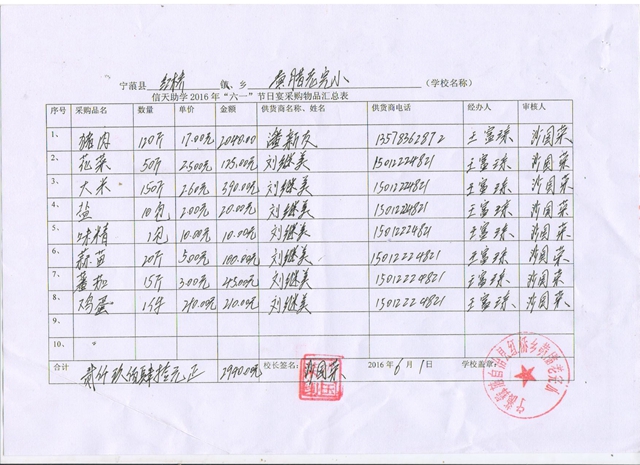 宁蒗县 红桥 镇、乡 黄腊老完小 (学校名称)
信天助学2016年“六一”节日宴采购物品汇总表
序号 采购品名 数量 单价 金额 供货商名称、姓名 供货商电话 经办人 审核人
1、 猪肉 120斤 17.00元 2040.00 13578362872 王富珠 沙国荣
2、 花菜 50斤 2.500元 125.00元 刘继美 15012224821 王富珠 沙国荣
3、 大米 150斤 2.60元 390.00元 刘继美 15012224821 王富珠 沙国荣
4、 盐 10包 2.00元 20.00元 刘继美 15012224821 王富珠 沙国荣
5、 味精 1包 10.00元 10.00元 刘继美 15012224821 王富珠 沙国荣
6、 蒜苗 20斤 5.00元 100.00元 刘继美 15012224821 王富珠 沙国荣
7、 蕃茄 15斤 3.00元 45.00元 刘继美 15012224821 王富珠 沙国荣
8、 鸡蛋 1件 210.00元 210.00元 刘继美 15012224821 王富珠 沙国荣
9、
10、
合计 贰仟玖佰肆拾元正 2940.00元 校长签名: 沙国荣 2016年6月1日 学校盖章: